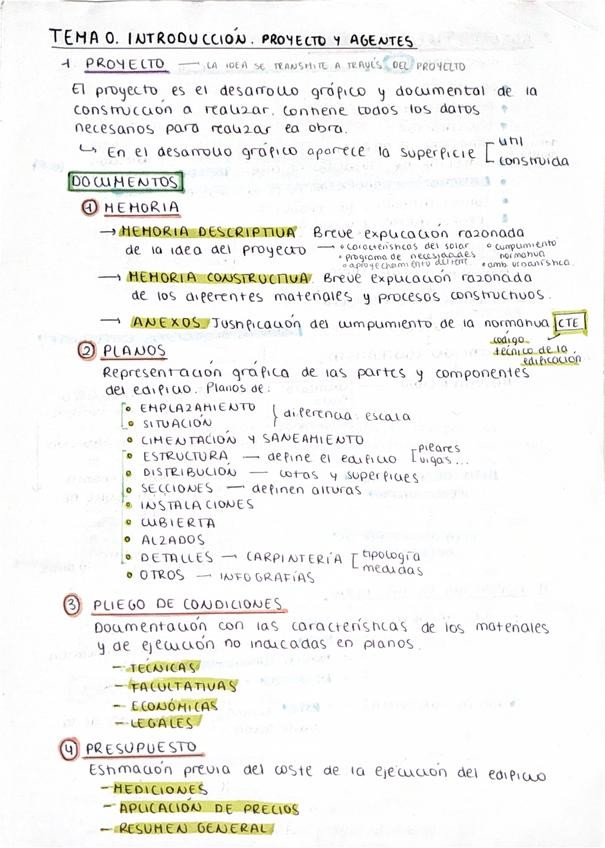 TEMA 0. INTRODUCCIÓN. PROYECTO Y AGENTES
1. PROYECTO — LA IDEA SE TRANSMITE A TRAVÉS DEL PROYECTO
El proyecto es el desarrollo gráfico y documental de la
construcción a realizar. Contiene todos los datos
necesarios para realizar la obra.
↳ En el desarrollo gráfico aparece la superficie [ útil
construida
DOCUMENTOS
① MEMORIA
→ MEMORIA DESCRIPTIVA. Breve explicación razonada
de la idea del proyecto — • características del solar • cumplimiento
• programa de necesidades normativa
• aprovechamiento • amb. urbanística
→ MEMORIA CONSTRUCTIVA. Breve explicación razonada
de los diferentes materiales y procesos constructivos.
→ ANEXOS. Justificación del cumplimiento de la normativa CTE
código
técnico de la
edificación
② PLANOS
Representación gráfica de las partes y componentes
del edificio. Planos de:
• EMPLAZAMIENTO
• SITUACIÓN } diferencia: escala
• CIMENTACIÓN Y SANEAMIENTO
• ESTRUCTURA — define el edificio [ pilares
vigas...
• DISTRIBUCIÓN — cotas y superficies
• SECCIONES — definen alturas
• INSTALACIONES
• CUBIERTA
• ALZADOS
• DETALLES — CARPINTERÍA [ tipología
medidas
• OTROS — INFOGRAFÍAS
③ PLIEGO DE CONDICIONES
Documentación con las características de los materiales
y de ejecución no indicadas en planos.
- TÉCNICAS
- FACULTATIVAS
- ECONÓMICAS
- LEGALES
④ PRESUPUESTO
Estimación previa del coste de la ejecución del edificio
- MEDICIONES
- APLICACIÓN DE PRECIOS
- RESUMEN GENERAL